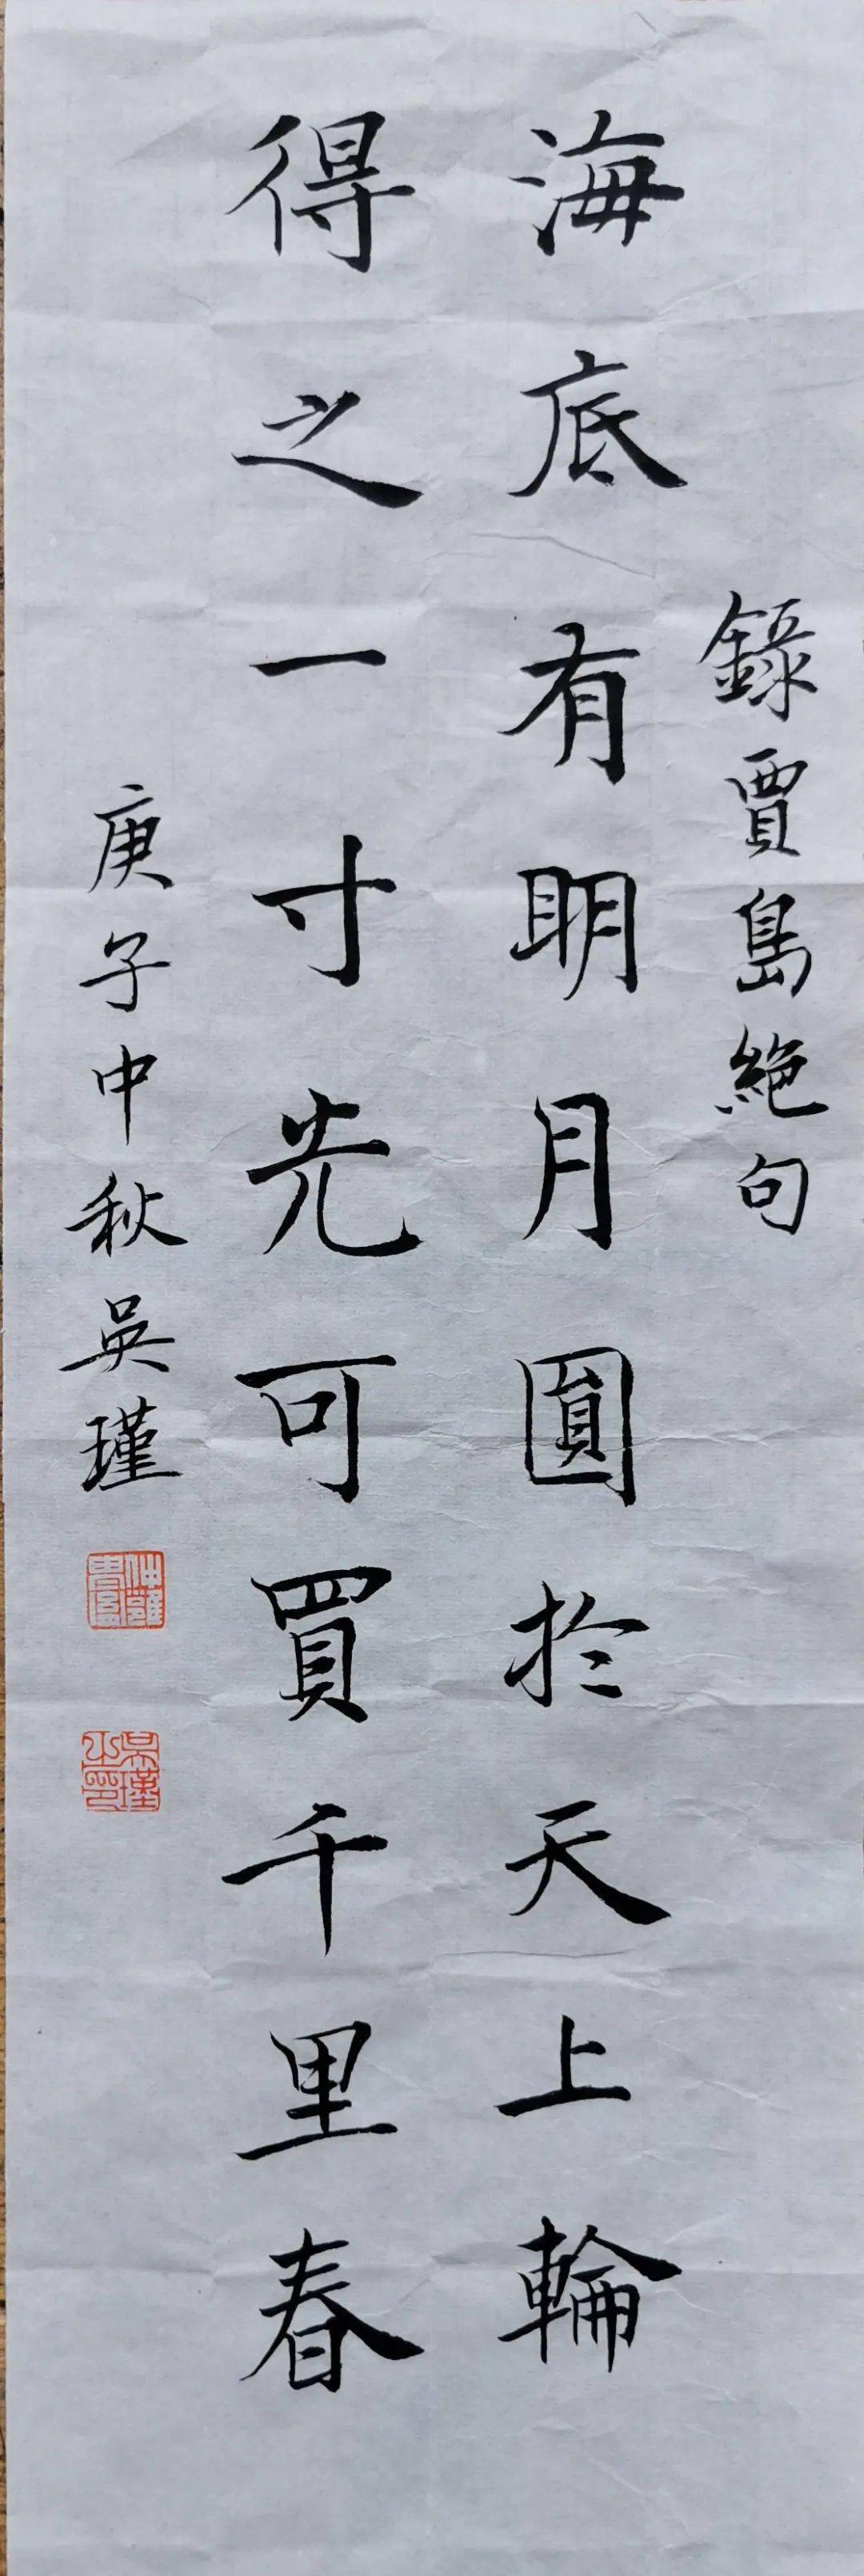 錄賈島絕句
海底有明月圓於天上輪
得之一寸光可買千里春
庚子中秋吳瑾
吳瑾之印